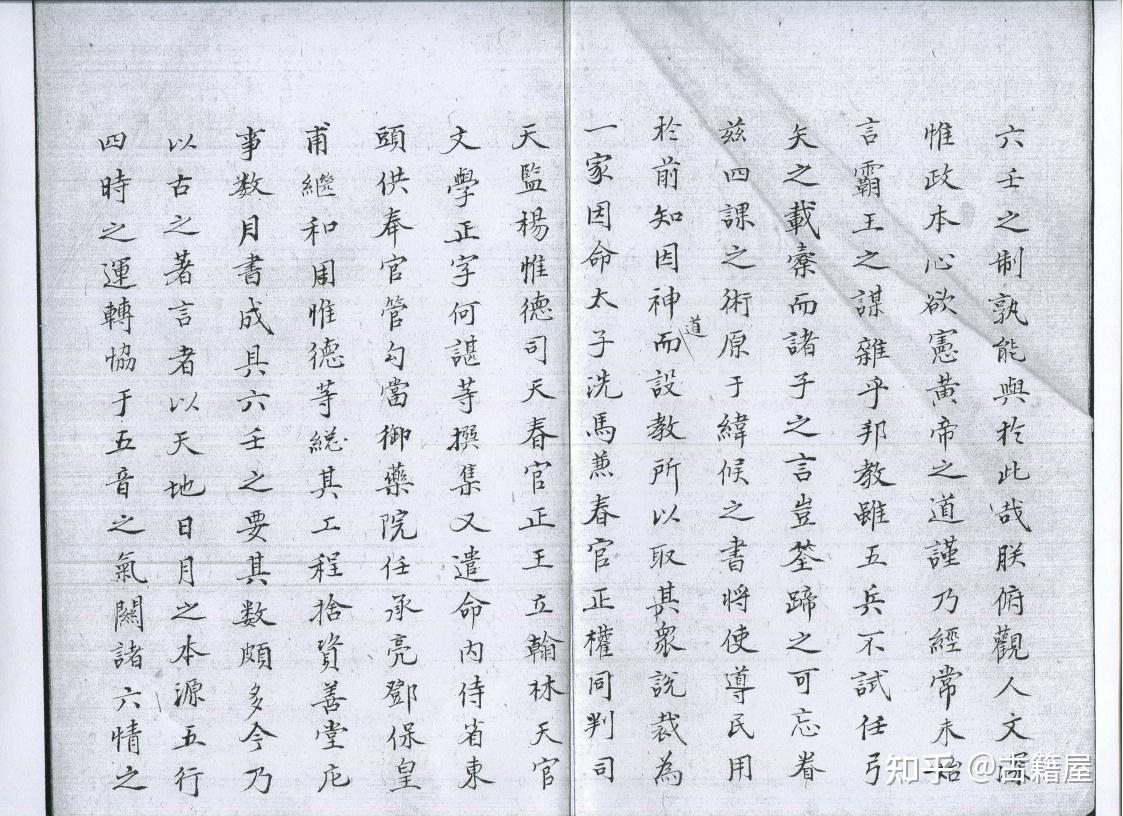 六壬之制孰能與於此哉朕俯觀人文深
惟政本心欲憲黃帝之道謹乃經常未始
言霸王之謀雜乎邦教雖五兵不試任弓
矢之載櫜而諸子之言豈筌蹄之可忘眷
茲四課之術原于緯候之書將使導民用
於前知因神道而設教所以取其衆說裁為
一家因命太子洗馬兼春官正權同判司
天監楊惟德司天春官正王立翰林天官
文學正字何諶等撰集又遣命內侍省東
頭供奉官管勾當御藥院任承亮鄧保皇
甫繼和周惟德等総其工程捨資善堂庀
事数月書成具六壬之要其数頗多今乃
以古之著言者以天地日月之本源五行
四時之運轉協于五音之氣關諸六情之
知乎 @古籍屋